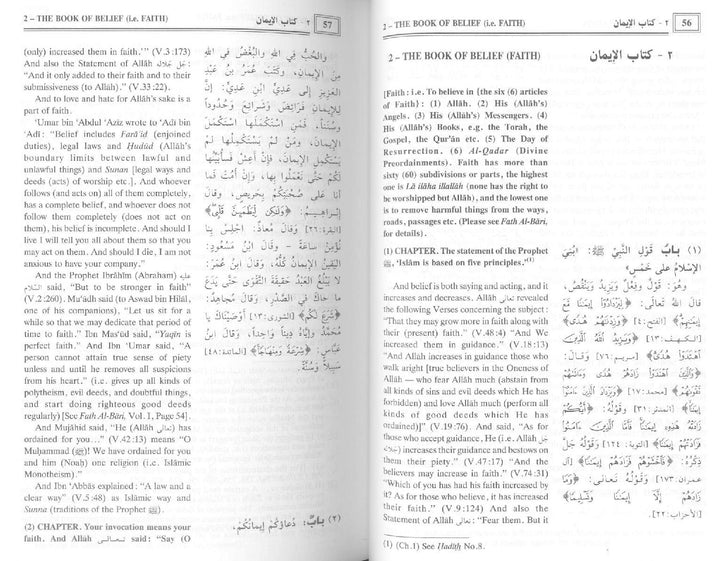 2 – THE BOOK OF BELIEF (i.e. FAITH)
٢ - كتاب الإيمان
56
2 – THE BOOK OF BELIEF (FAITH)
٢ - كتاب الإيمان
[Faith: i.e. To believe in [the six (6) articles
of Faith): (1) Allâh. (2) His (Allâh's)
Angels. (3) His (Allâh's) Messengers. (4)
His (Allâh's) Books, e.g. the Torah, the
Gospel, the Qur'ân etc. (5) The Day of
Resurrection. (6) Al-Qadar (Divine
Preordainments). Faith has more than
sixty (60) subdivisions or parts, the highest
one is Lâ ilâha illallâh (none has the right to
be worshipped but Allâh), and the lowest one
is to remove harmful things from the ways,
roads, passages etc. (Please see Fath Al-Bâri,
for details).
(1) CHAPTER. The statement of the Prophet
ﷺ, 'Islâm is based on five principles.'(1)
And belief is both saying and acting, and it
increases and decreases. Allâh تعالى revealed
the following Verses concerning the subject:
"That they may grow more in faith along with
their (present) faith." (V.48:4) "And We
increased them in guidance." (V.18:13)
"And Allâh increases in guidance those who
walk aright [true believers in the Oneness of
Allâh — who fear Allâh much (abstain from
all kinds of sins and evil deeds which He has
forbidden) and love Allâh much (perform all
kinds of good deeds which He has
ordained)]" (V.19:76). And said, "As for
those who accept guidance, He (i.e. Allâh جل
جلاله) increases their guidance and bestows on
them their piety." (V.47:17) "And the
believers may increase in faith." (V.74:31)
"Which of you has had his faith increased by
it? As for those who believe, it has increased
their faith." (V.9:124) And also the
Statement of Allâh تعالى: "Fear them. But it
(١) بَابُ قَوْلِ النَّبِيِّ ﷺ: بُنِيَ
الإِسْلَامُ عَلَى خَمْسٍ
وَهُوَ: قَوْلٌ وَفِعْلٌ وَيَزِيدُ وَيَنْقُصُ،
قَالَ اللهُ تَعَالَى: ﴿لِيَزْدَادُوٓا۟ إِيمَٰنًا مَّعَ
إِيمَٰنِهِمْ﴾ [الفتح:٤] ﴿وَزِدْنَٰهُمْ هُدًى﴾
[الكهف:١٣] ﴿وَيَزِيدُ ٱللَّهُ ٱلَّذِينَ
ٱهْتَدَوْا۟ هُدًى﴾ [مريم:٧٦] وَقَالَ:
﴿وَٱلَّذِينَ ٱهْتَدَوْا۟ زَادَهُمْ هُدًى وَءَاتَىٰهُمْ
تَقْوَىٰهُمْ﴾ ﴿وَيَزْدَادَ ٱلَّذِينَ ءَامَنُوٓا۟
إِيمَٰنًا﴾ [المدثر:٣١] وَقَوْلُهُ: ﴿أَيُّكُمْ
زَادَتْهُ هَٰذِهِۦٓ إِيمَٰنًا فَأَمَّا ٱلَّذِينَ ءَامَنُوا۟
فَزَادَتْهُمْ إِيمَٰنًا﴾ [التوبة:١٢٤] وَقَوْلُهُ جَلَّ
ذِكْرُهُ: ﴿فَٱخْشَوْهُمْ فَزَادَهُمْ إِيمَٰنًا﴾ [آل
عمران:١٧٣] وَقَوْلُهُ تَعَالَى: ﴿وَمَا
زَادَهُمْ إِلَّآ إِيمَٰنًا وَتَسْلِيمًا﴾
[الأحزاب:٢٢].
(1) (Ch.1) See Hadîth No.8.
2 – THE BOOK OF BELIEF (i.e. FAITH)
٢ - كتاب الإيمان
57
(only) increased them in faith.'" (V.3:173)
And also the Statement of Allâh جل جلاله:
"And it only added to their faith and to their
submissiveness (to Allâh)." (V.33:22).
And to love and hate for Allâh's sake is a
part of faith.
'Umar bin 'Abdul 'Azîz wrote to 'Adî bin
'Adî: "Belief includes Farâ'id (enjoined
duties), legal laws and Hudûd (Allâh's
boundary limits between lawful and
unlawful things) and Sunan [legal ways and
deeds (acts) of worship etc.]. And whoever
follows (and acts on) all of them completely,
has a complete belief, and whoever does not
follow them completely (does not act on
them), his belief is incomplete. And should I
live I will tell you all about them so that you
may act on them. And should I die, I am not
anxious to have your company."
And the Prophet Ibrâhîm (Abraham) عليه
السلام said, "But to be stronger in faith"
(V.2:260). Mu'âdh said (to Aswad bin Hilâl,
one of his companions), "Let us sit for a
while so that we may dedicate that period of
time to faith." Ibn Mas'ûd said, "Yaqîn is
perfect faith." And Ibn 'Umar said, "A
person cannot attain true sense of piety
unless and until he removes all suspicions
from his heart." (i.e. gives up all kinds of
polytheism, evil deeds, and doubtful things,
and start doing righteous good deeds
regularly) [See Fath Al-Bâri, Vol. 1, Page 54].
And Mujâhid said, "He (Allâh تعالى) has
ordained for you..." (V.42:13) means "O
Muhammad (ﷺ)! We have ordained for you
and him (Noah) one religion (i.e. Islâmic
Monotheism)."
And Ibn 'Abbâs explained: "A law and a
clear way" (V.5:48) as Islâmic way and
Sunna (traditions of the Prophet ﷺ).
(2) CHAPTER. Your invocation means your
faith. And Allâh تعالى said: "Say (O
وَالْحُبُّ فِي اللهِ وَالْبُغْضُ فِي اللهِ
مِنَ الإِيمَانِ، وَكَتَبَ عُمَرُ بْنُ عَبْدِ
الْعَزِيزِ إِلَى عَدِيِّ ابْنِ عَدِيٍّ: إِنَّ
لِلْإِيمَانِ فَرَائِضَ وَشَرَائِعَ وَحُدُودًا
وَسُنَنًا. فَمَنِ اسْتَكْمَلَهَا اسْتَكْمَلَ
الإِيمَانَ، وَمَنْ لَمْ يَسْتَكْمِلْهَا لَمْ
يَسْتَكْمِلِ الإِيمَانَ، فَإِنْ أَعِشْ فَسَأُبَيِّنُهَا
لَكُمْ حَتَّى تَعْمَلُوا بِهَا، وَإِنْ أَمُتْ فَمَا
أَنَا عَلَى صُحْبَتِكُمْ بِحَرِيصٍ، وَقَالَ
إِبْرَاهِيمُ: ﴿وَلَٰكِن لِّيَطْمَئِنَّ قَلْبِى﴾
[البقرة:٢٦٠] وَقَالَ مُعَاذٌ: اجْلِسْ بِنَا
نُؤْمِنْ سَاعَةً - وَقَالَ ابْنُ مَسْعُودٍ:
الْيَقِينُ الإِيمَانُ كُلُّهُ، وَقَالَ ابْنُ عُمَرَ:
لَا يَبْلُغُ الْعَبْدُ حَقِيقَةَ التَّقْوَى حَتَّى يَدَعَ
مَا حَاكَ فِي الصَّدْرِ، وَقَالَ مُجَاهِدٌ:
﴿شَرَعَ لَكُم﴾ [الشورى:١٣] أَوْصَيْنَاكَ يَا
مُحَمَّدُ وَإِيَّاهُ دِينًا وَاحِدًا، وَقَالَ ابْنُ
عَبَّاسٍ: ﴿شِرْعَةً وَمِنْهَاجًا﴾ [المائدة:٤٨]
سَبِيلًا وَسُنَّةً.
(٢) بَابٌ: دُعَاؤُكُمْ إِيمَانُكُمْ،